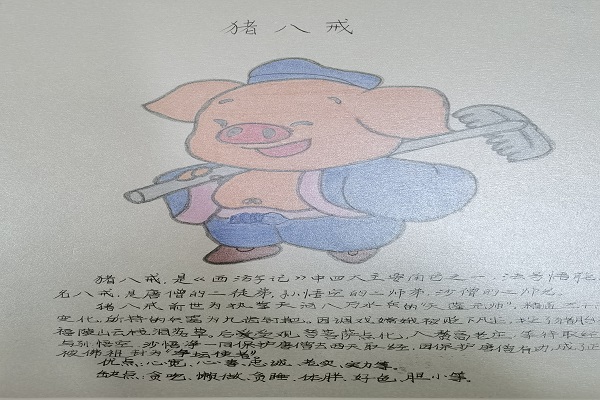 猪八戒
猪八戒,是《西游记》中四大主要角色之一,法号悟能
名八戒,是唐僧的二徒弟,孙悟空的二师弟,沙僧的二师兄。
猪八戒前世为执掌天河八万水兵的"天蓬元帅",精通三十
变化,所持的兵器为九齿钉耙,因调戏嫦娥被贬下凡,
福陵山云栈洞落草,后受观音菩萨点化,入赘高老庄,等待取经
与孙悟空、沙悟净一同保护唐僧去西天取经,因保护唐僧有功成了正
被佛祖封为"净坛使者"
优点:心宽、心善、忠诚、老实、实力等。
缺点:贪吃、懒做、贪睡、体胖、好色、胆小等。